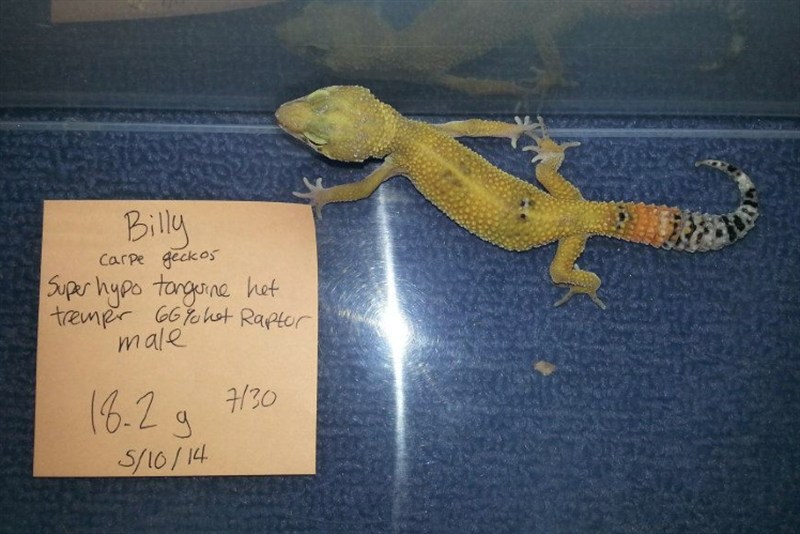 Billy
carpe geckos
Super hypo tangerine het
tremper 66% het Raptor
male
18.2 g 7/30
5/10/14